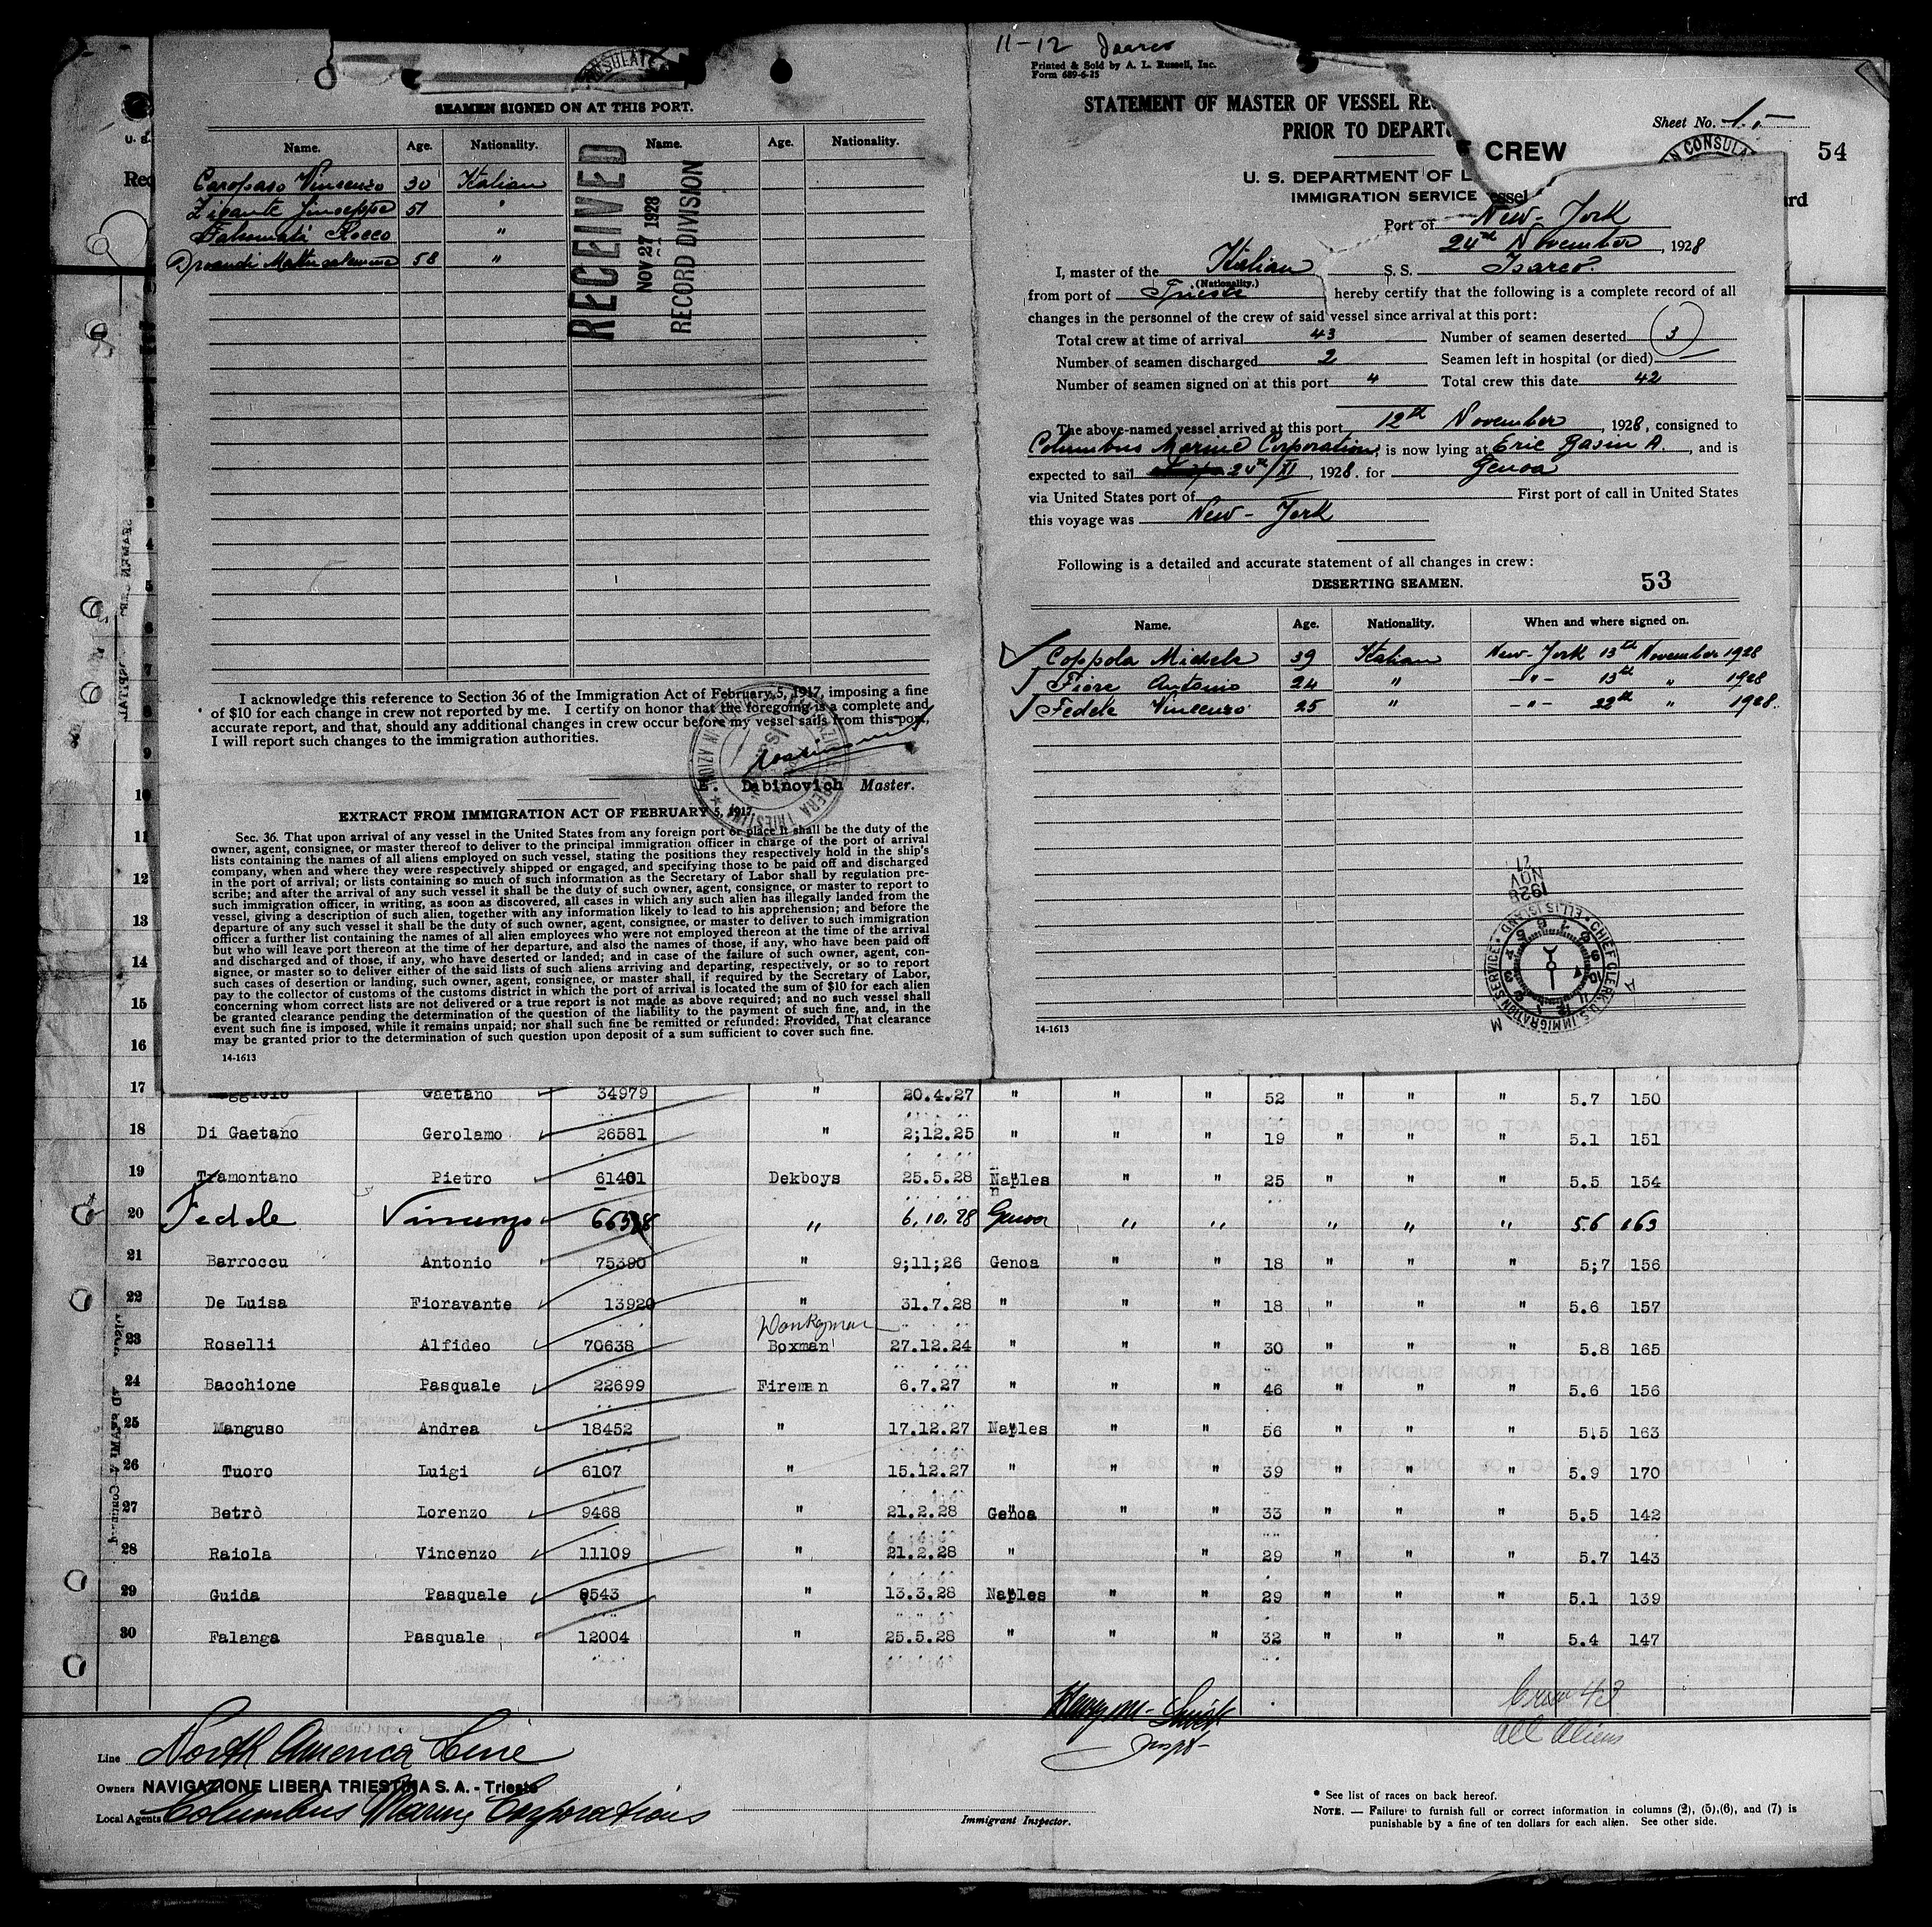 SEAMEN SIGNED ON AT THIS PORT.
Name. Age. Nationality. Name. Age. Nationality.
Caropaso Vincenzo 30 Italian
Zicante Giuseppe 51 "
Rocco "
58 "
RECEIVED
NOV 27 1928
RECORD DIVISION
I acknowledge this reference to Section 36 of the Immigration Act of February 5, 1917, imposing a fine
of $10 for each change in crew not reported by me. I certify on honor that the foregoing is a complete and
accurate report, and that, should any additional changes in crew occur before my vessel sails from this port,
I will report such changes to the immigration authorities.
Dabinovich Master.
EXTRACT FROM IMMIGRATION ACT OF FEBRUARY 5, 1917.
Sec. 36. That upon arrival of any vessel in the United States from any foreign port or place it shall be the duty of the
owner, agent, consignee, or master thereof to deliver to the principal immigration officer in charge of the port of arrival
lists containing the names of all aliens employed on such vessel, stating the positions they respectively hold in the ship's
company, when and where they were respectively shipped or engaged, and specifying those to be paid off and discharged
in the port of arrival; or lists containing so much of such information as the Secretary of Labor shall by regulation pre-
scribe; and after the arrival of any such vessel it shall be the duty of such owner, agent, consignee, or master to report to
such immigration officer, in writing, as soon as discovered, all cases in which any such alien has illegally landed from the
vessel, giving a description of such alien, together with any information likely to lead to his apprehension; and before the
departure of any such vessel it shall be the duty of such owner, agent, consignee, or master to deliver to such immigration
officer a further list containing the names of all alien employees who were not employed thereon at the time of the arrival
but who will leave port thereon at the time of her departure, and also the names of those, if any, who have been paid off
and discharged and of those, if any, who have deserted or landed; and in case of the failure of such owner, agent, con-
signee, or master so to deliver either of the said lists of such aliens arriving and departing, respectively, or so to report
such cases of desertion or landing, such owner, agent, consignee, or master shall, if required by the Secretary of Labor,
pay to the collector of customs of the customs district in which the port of arrival is located the sum of $10 for each alien
concerning whom correct lists are not delivered or a true report is not made as above required; and no such vessel shall
be granted clearance pending the determination of the question of the liability to the payment of such fine, and, in the
event such fine is imposed, while it remains unpaid; nor shall such fine be remitted or refunded: Provided, That clearance
may be granted prior to the determination of such question upon deposit of a sum sufficient to cover such fine.
14-1613
11-12 Isarco
Printed & Sold by A. L. Russell, Inc.
Form 689-6-25
STATEMENT OF MASTER OF VESSEL RE
PRIOR TO DEPART
CREW
Sheet No. 15
54
U. S. DEPARTMENT OF L
IMMIGRATION SERVICE
Port of New-York
24th November, 1928
I, master of the Italian S. S. Isarco.
(Nationality.)
from port of Trieste hereby certify that the following is a complete record of all
changes in the personnel of the crew of said vessel since arrival at this port:
Total crew at time of arrival 43 Number of seamen deserted 3
Number of seamen discharged 2 Seamen left in hospital (or died) —
Number of seamen signed on at this port 4 Total crew this date 42
The above-named vessel arrived at this port 12th November, 1928, consigned to
Columbus Marine Corporation, is now lying at Eric Basin A., and is
expected to sail 24th/XI, 1928. for Genoa
via United States port of First port of call in United States
this voyage was New-York
Following is a detailed and accurate statement of all changes in crew:
DESERTING SEAMEN.
53
Name. Age. Nationality. When and where signed on.
Coppola Michele 39 Italian New-York 13th November 1928
Fiore Antonio 24 " -"- 13th " 1928
Fedele Vincenzo 25 " -"- 22th " 1928.
1928
NOV
27
CHIEF CLERK, U.S. IMMIGRATION SERVICE ELLIS ISLAND
14-1613
4
5
6
7
8
9
10
11
12
13
14
15
16
17 Gaetano 34979 " 20.4.27 " " " 52 " " " 5.7 150
18 Di Gaetano Gerolamo 26581 " 2;12.25 " " " 19 " " " 5.1 151
19 Tramontano Pietro 61401 Dekboys 25.5.28 Naples " " 25 " " " 5.5 154
20 Fedele Vincenzo " 6.10.28 Genoa " " " " " 5.6 163
21 Barroccu Antonio 75390 " 9;11;26 Genoa " " 18 " " " 5;7 156
22 De Luisa Fioravante 13920 " 31.7.28 " " " 18 " " " 5.6 157
Donkeyman
23 Roselli Alfideo 70638 Boxman 27.12.24 " " " 30 " " " 5.8 165
24 Bacchione Pasquale 22699 Fireman 6.7.27 " " " 46 " " " 5.6 156
25 Manguso Andrea 18452 " 17.12.27 Naples " " 56 " " " 5.5 163
26 Tuoro Luigi 6107 " 15.12.27 " " " 39 " " " 5.9 170
27 Betrò Lorenzo 9468 " 21.2.28 Genoa " " 33 " " " 5.5 142
28 Raiola Vincenzo 11109 " 21.2.28 " " 29 " " " 5.7 143
29 Guida Pasquale 9543 " 13.3.28 Naples " " 29 " " " 5.1 139
30 Falanga Pasquale 12004 " 25.5.28 " " " 32 " " " 5.4 147
Crew 43
all aliens
Line North America Line
Owners NAVIGAZIONE LIBERA TRIESTINA S. A. - Trieste
Local Agents Columbus Marine Corporations
Henry M. Smith
Inspt-
Immigrant Inspector.
* See list of races on back hereof.
NOTE. — Failure to furnish full or correct information in columns (2), (5),(6), and (7) is
punishable by a fine of ten dollars for each alien. See other side.